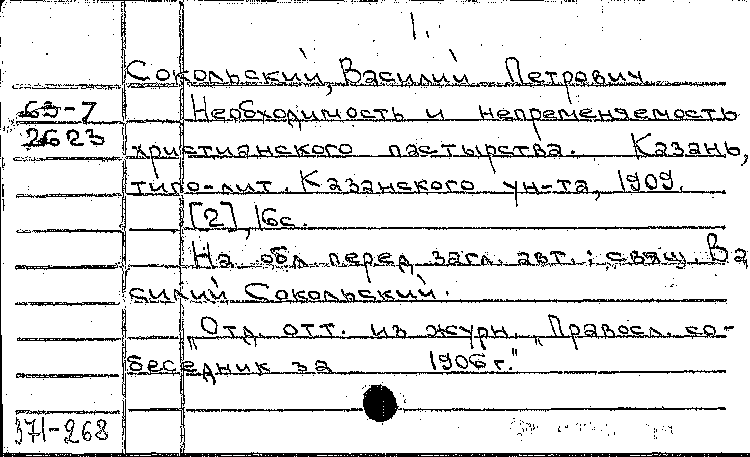 1.
Сокольский, Василий Петрович
63-7
2623
Необходимость и непременяемость
христианского пастырства. Казань,
типо-лит. Казанского ун-та, 1909.
[2], 16с.
На обл. перед загл. авт.: свящ. Ва
силий Сокольский.
„Отд. отт. из журн. „Правосл. со-
беседник за 1906 г."
371-268